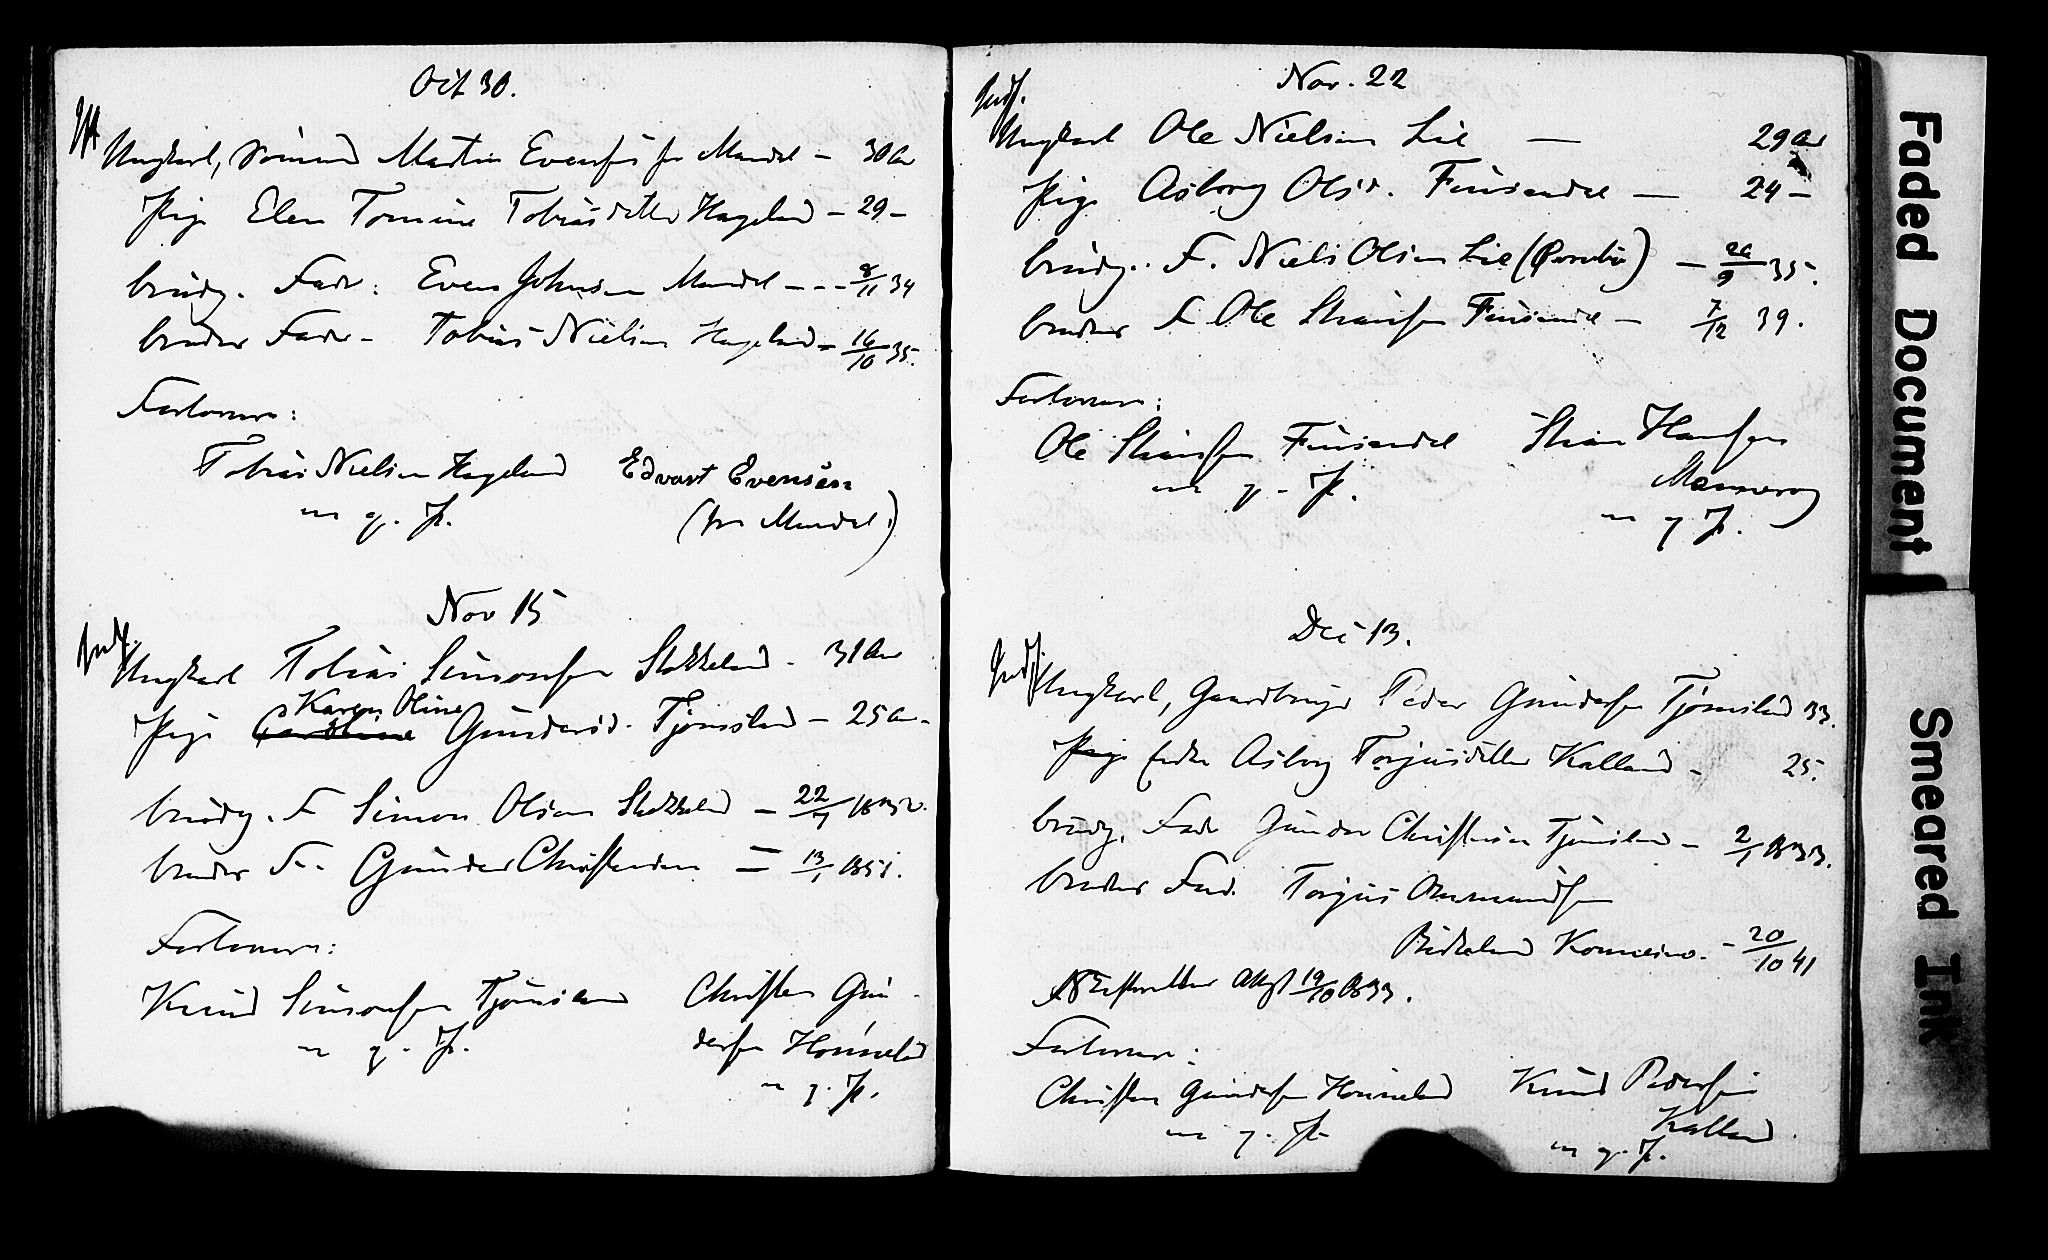 Oct 30.
Ungkarl, Sømand Martin Evensen fra Mandal – 30 Aar
Pige Elen Tomine Tobiasdatter Hageland – 29 –
brudg. Fader: Even Johnsen Mandal – – – 8/11 34
brudens Fader – Tobias Nielsen Hageland = 16/10 35.
Forlovere:
Tobias Nielsen Hageland Edvart Evensen
m. p. P. (fra Mandal.)
Nov 15
Indf.
Ungkarl Tobias Simonsen Stokkeland – 31 Aar
Karen Oline
Pige Caroline Gundersd. Tjomsland – 25 Aar –
brudg. F Simon Olsen Stokkeland – 22/7 1832.
brudens F.. Gunder Christensen = 13/1 1851.
Forlovere:
Knud Simonsen Tjomsland Christen Gun-
m. p. P. dersen Honneland
m. p. P.
Nov. 22
Indf.
Ungkarl Ole Nielsen Lie — 29 Aar
Pige Asborg Olsd. Finsandal — 24 –
brudg. F. Niels Olsen Lie (Øvrebø) – 20/9 35.
brudens F Ole Stiansen Finsandal – 7/12 39.
Forlovere:
Ole Stiansen Finsandal Stian Hansen
m. p. P. Mannerog
m. p. P.
Dec 13.
Indf.
Ungkarl, Gaardbruger Peder Gundersen Tjomsland 33.
Pige Enke Asborg Torjusdatter Kalland – 25.
brudg. Fader Gunder Christensen Tjomsland – 2/1 1833.
brudens Fad. Torjus Aamundsen
Birkeland Konnesmo. – 20/10 41
NB Skifteattest 19/10 1893.
Forlovere:
Christen Gundersen Honneland Knud Pedersen
m. p. P. Kalland
m. p. P.
Faded Document
Smeared Ink